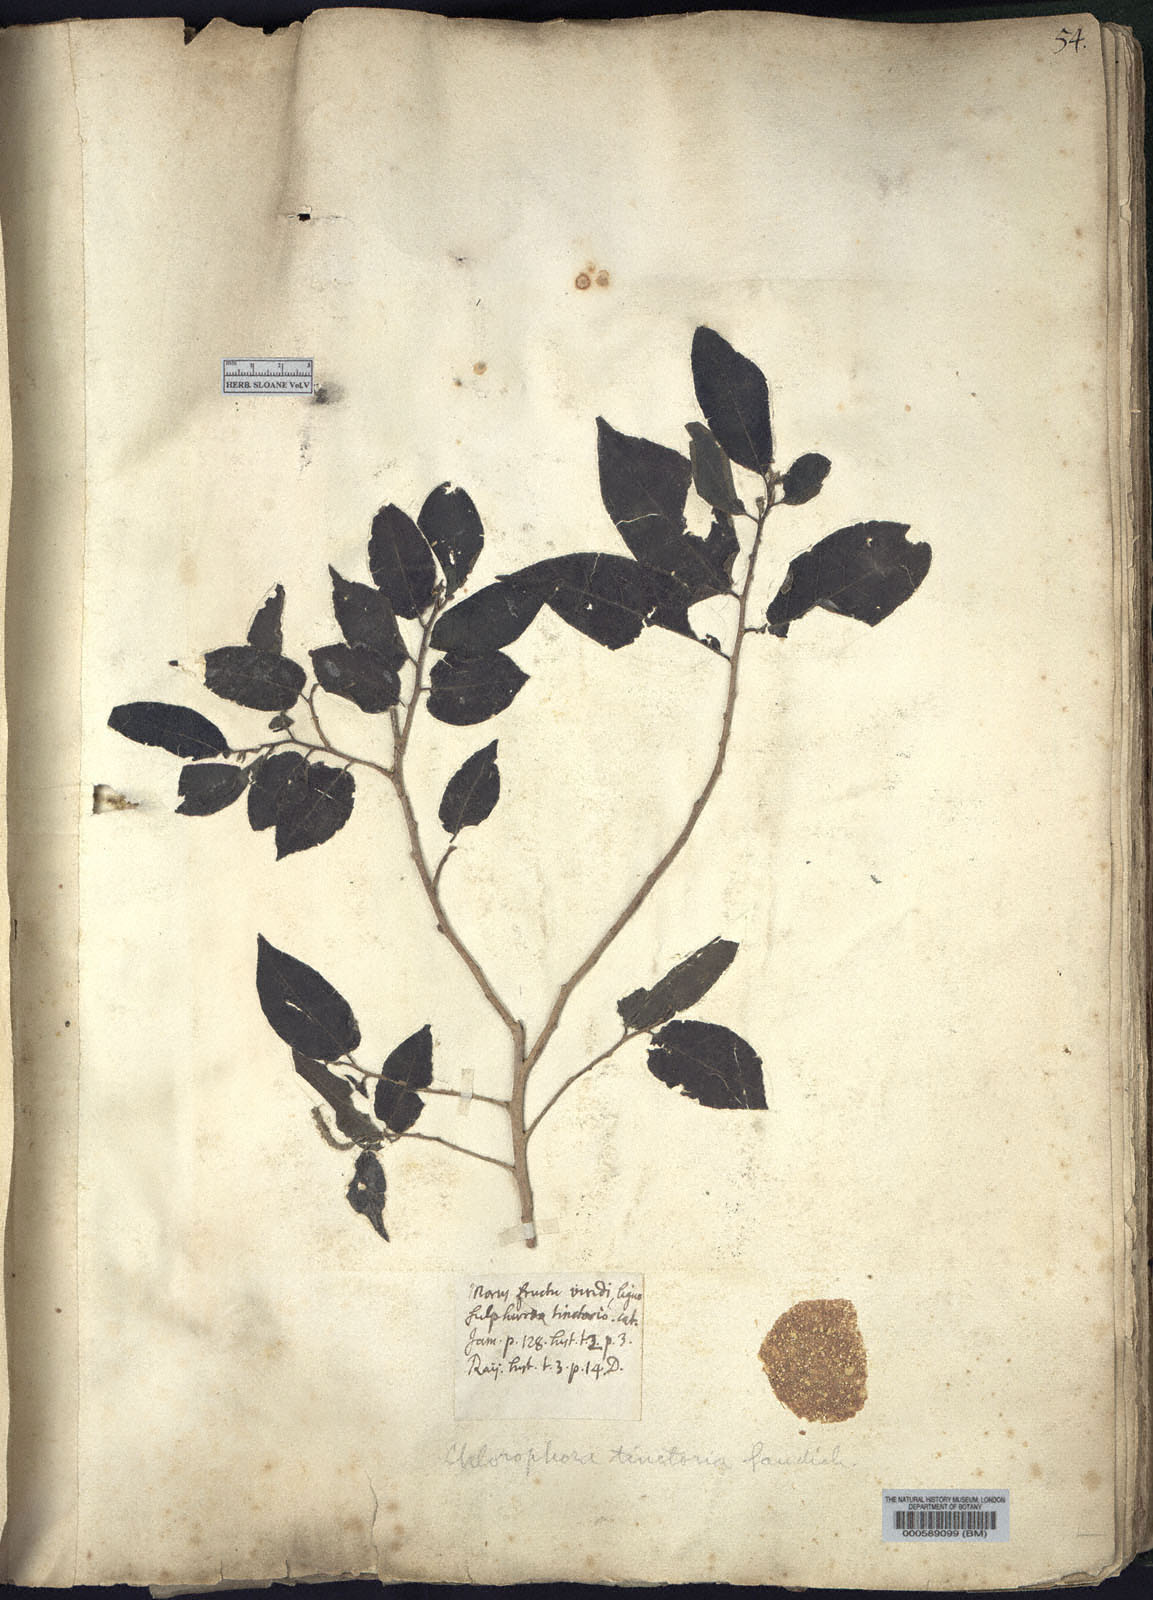 54.
HERB. SLOANE Vol.V
Morus fructu viridi, ligno
sulphureo tinctorio. Cat.
Jam. p. 128. hist. t. 2. p. 3.
Raij. hist. t. 3. p. 14. D.
Chlorophora tinctoria Gaudich.
THE NATURAL HISTORY MUSEUM, LONDON
DEPARTMENT OF BOTANY
000589099 (BM)